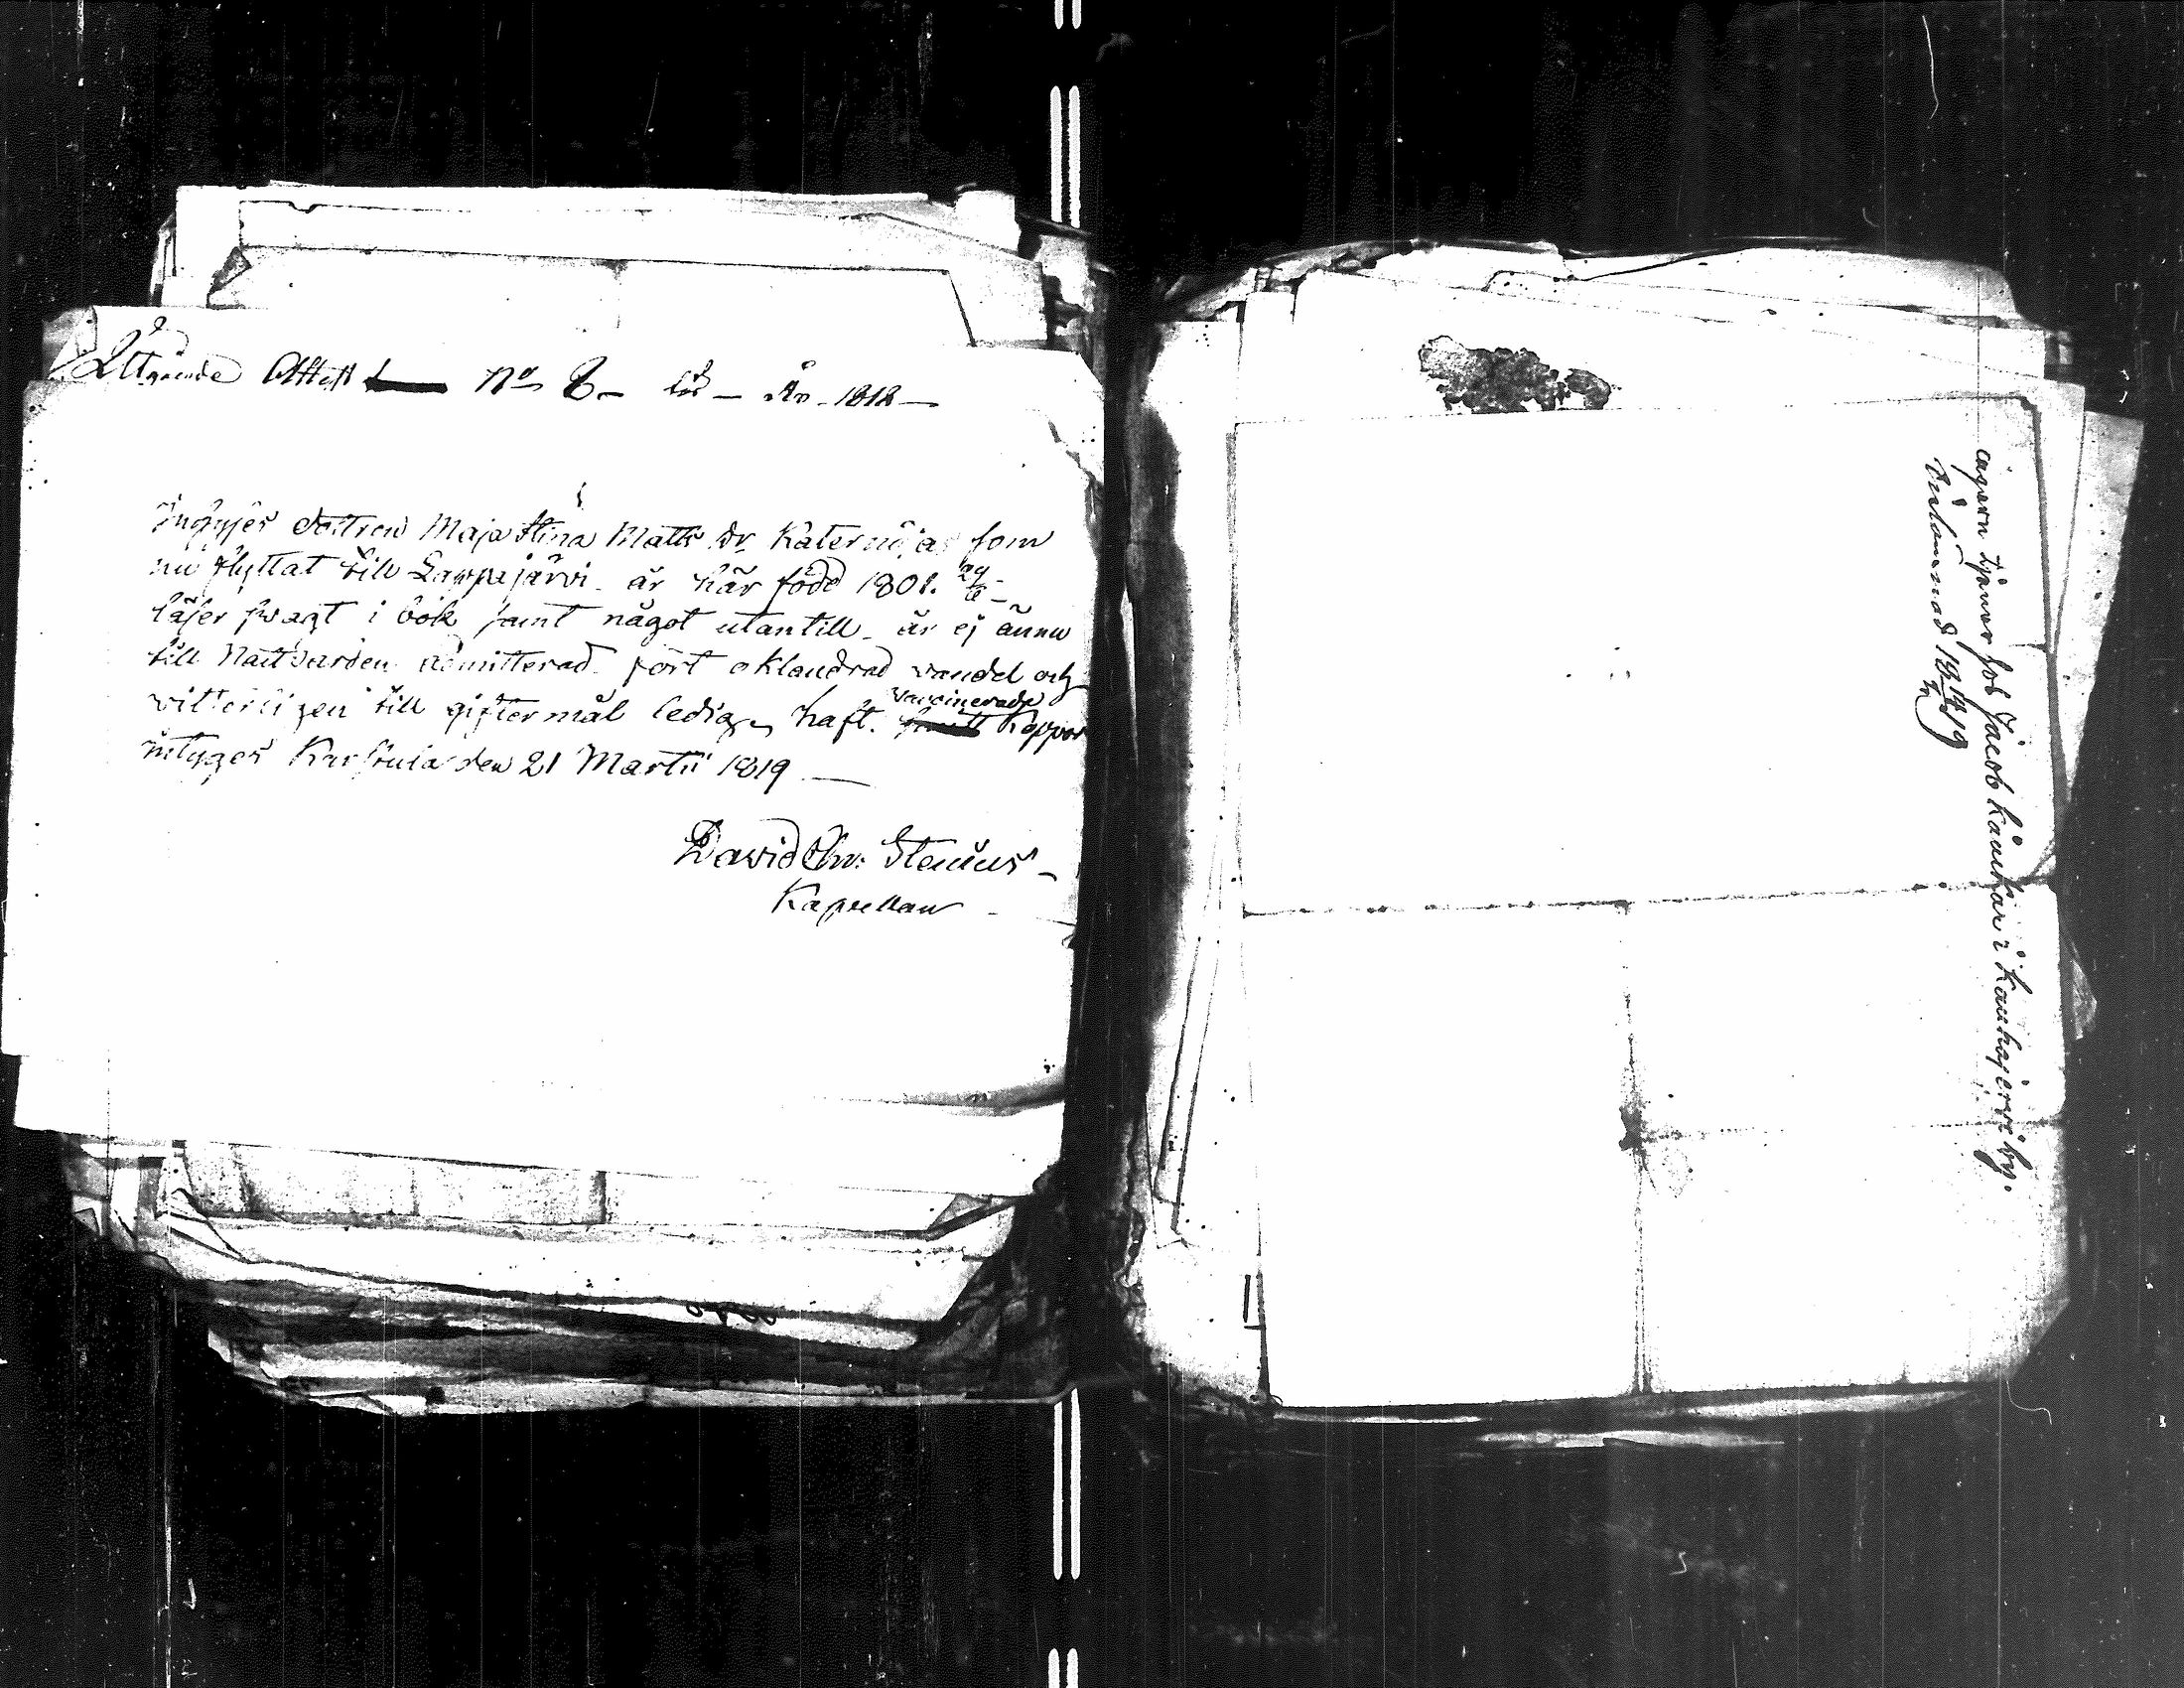 Utgående Attest No 8 för År 1818
Inhyses dottren Maja Stina Matts Dr Katernöja som
nu flyttat till Lappajärvi är här född 1801. 29/6
läser svagt i bok samt något utantill är ej ännu
till Nattvarden admitterad fört oklandrad vandel och
vitterligen till giftermål ledig, haft vaccinerade koppor
intygas Karstula den 21 Martii 1819
David Stenius
Kapellan
tjenar hos Jacob Kaukar i Kauhajervi by.
1819